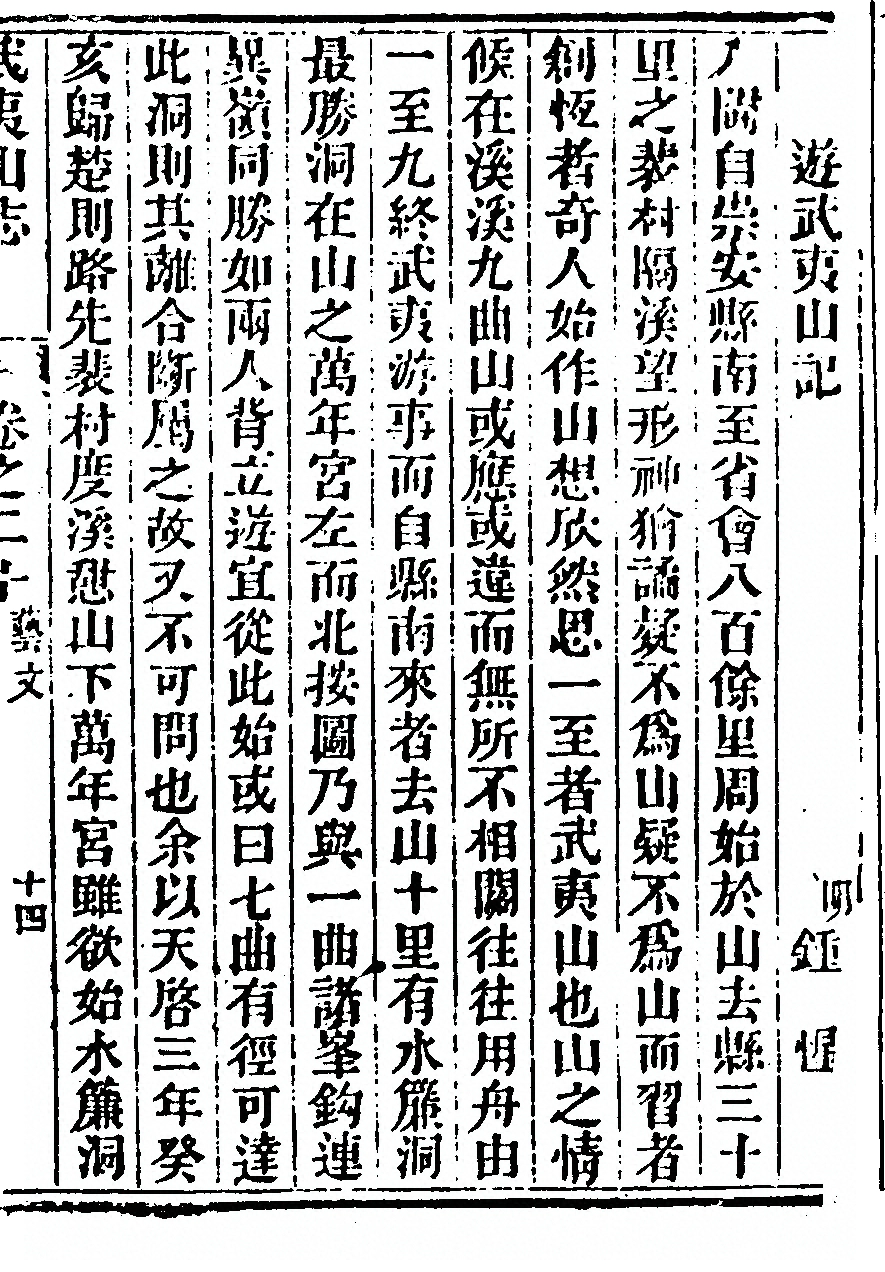 遊武夷山記
明 鍾 惺
入閩自崇安縣南至省會八百餘里周始於山去縣三十
里之裴村隔溪望形神猶譎疑不爲山疑不爲山而習者
創恆者奇人始作山想欣然思一至者武夷山也山之情
候在溪溪九曲山或應或違而無所不相關往往用舟由
一至九終武夷游事而自縣南來者去山十里有水簾洞
最勝洞在山之萬年宮左而北按圖乃與一曲諸峯鈎連
異嶺同勝如兩人背立遊宜從此始或曰七曲有徑可達
此洞則其離合斷屬之故又不可問也余以天啓三年癸
亥歸楚則路先裴村度溪憩山下萬年宮雖欲始水簾洞
武夷山志
卷之二十 藝文
十四